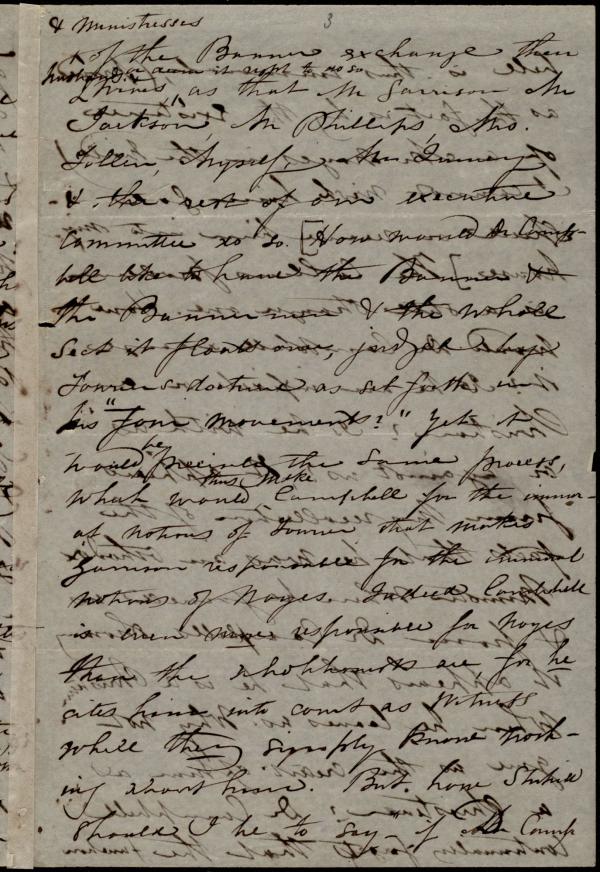 3
& Ministresses
of the Banner exchange their
husbands or deem it right to do so
& wives, as that Mr Garrison Mr
Jackson, Mr Phillips, Mrs.
Follen, Myself, Mr Quincy
& the rest of our executive
Committee do so. [How would Dr Camp-
bell like to have the Banner &
the Banner men & the whole
Sect it floats over, judged by
Fourier's doctrine as set forth in
his "four movements?" Yet it
would be precisely the same process,
what would thus make Campbell for the immor-
al notions of Fourier that makes
Garrison responsible for the criminal
notions of Noyes. Indeed Campbell
is even more responsible for Noyes
than the abolitionists are, for he
cites him into court as witness
while they simply know noth-
ing about him. But how
should I be to say "if Dr Camp